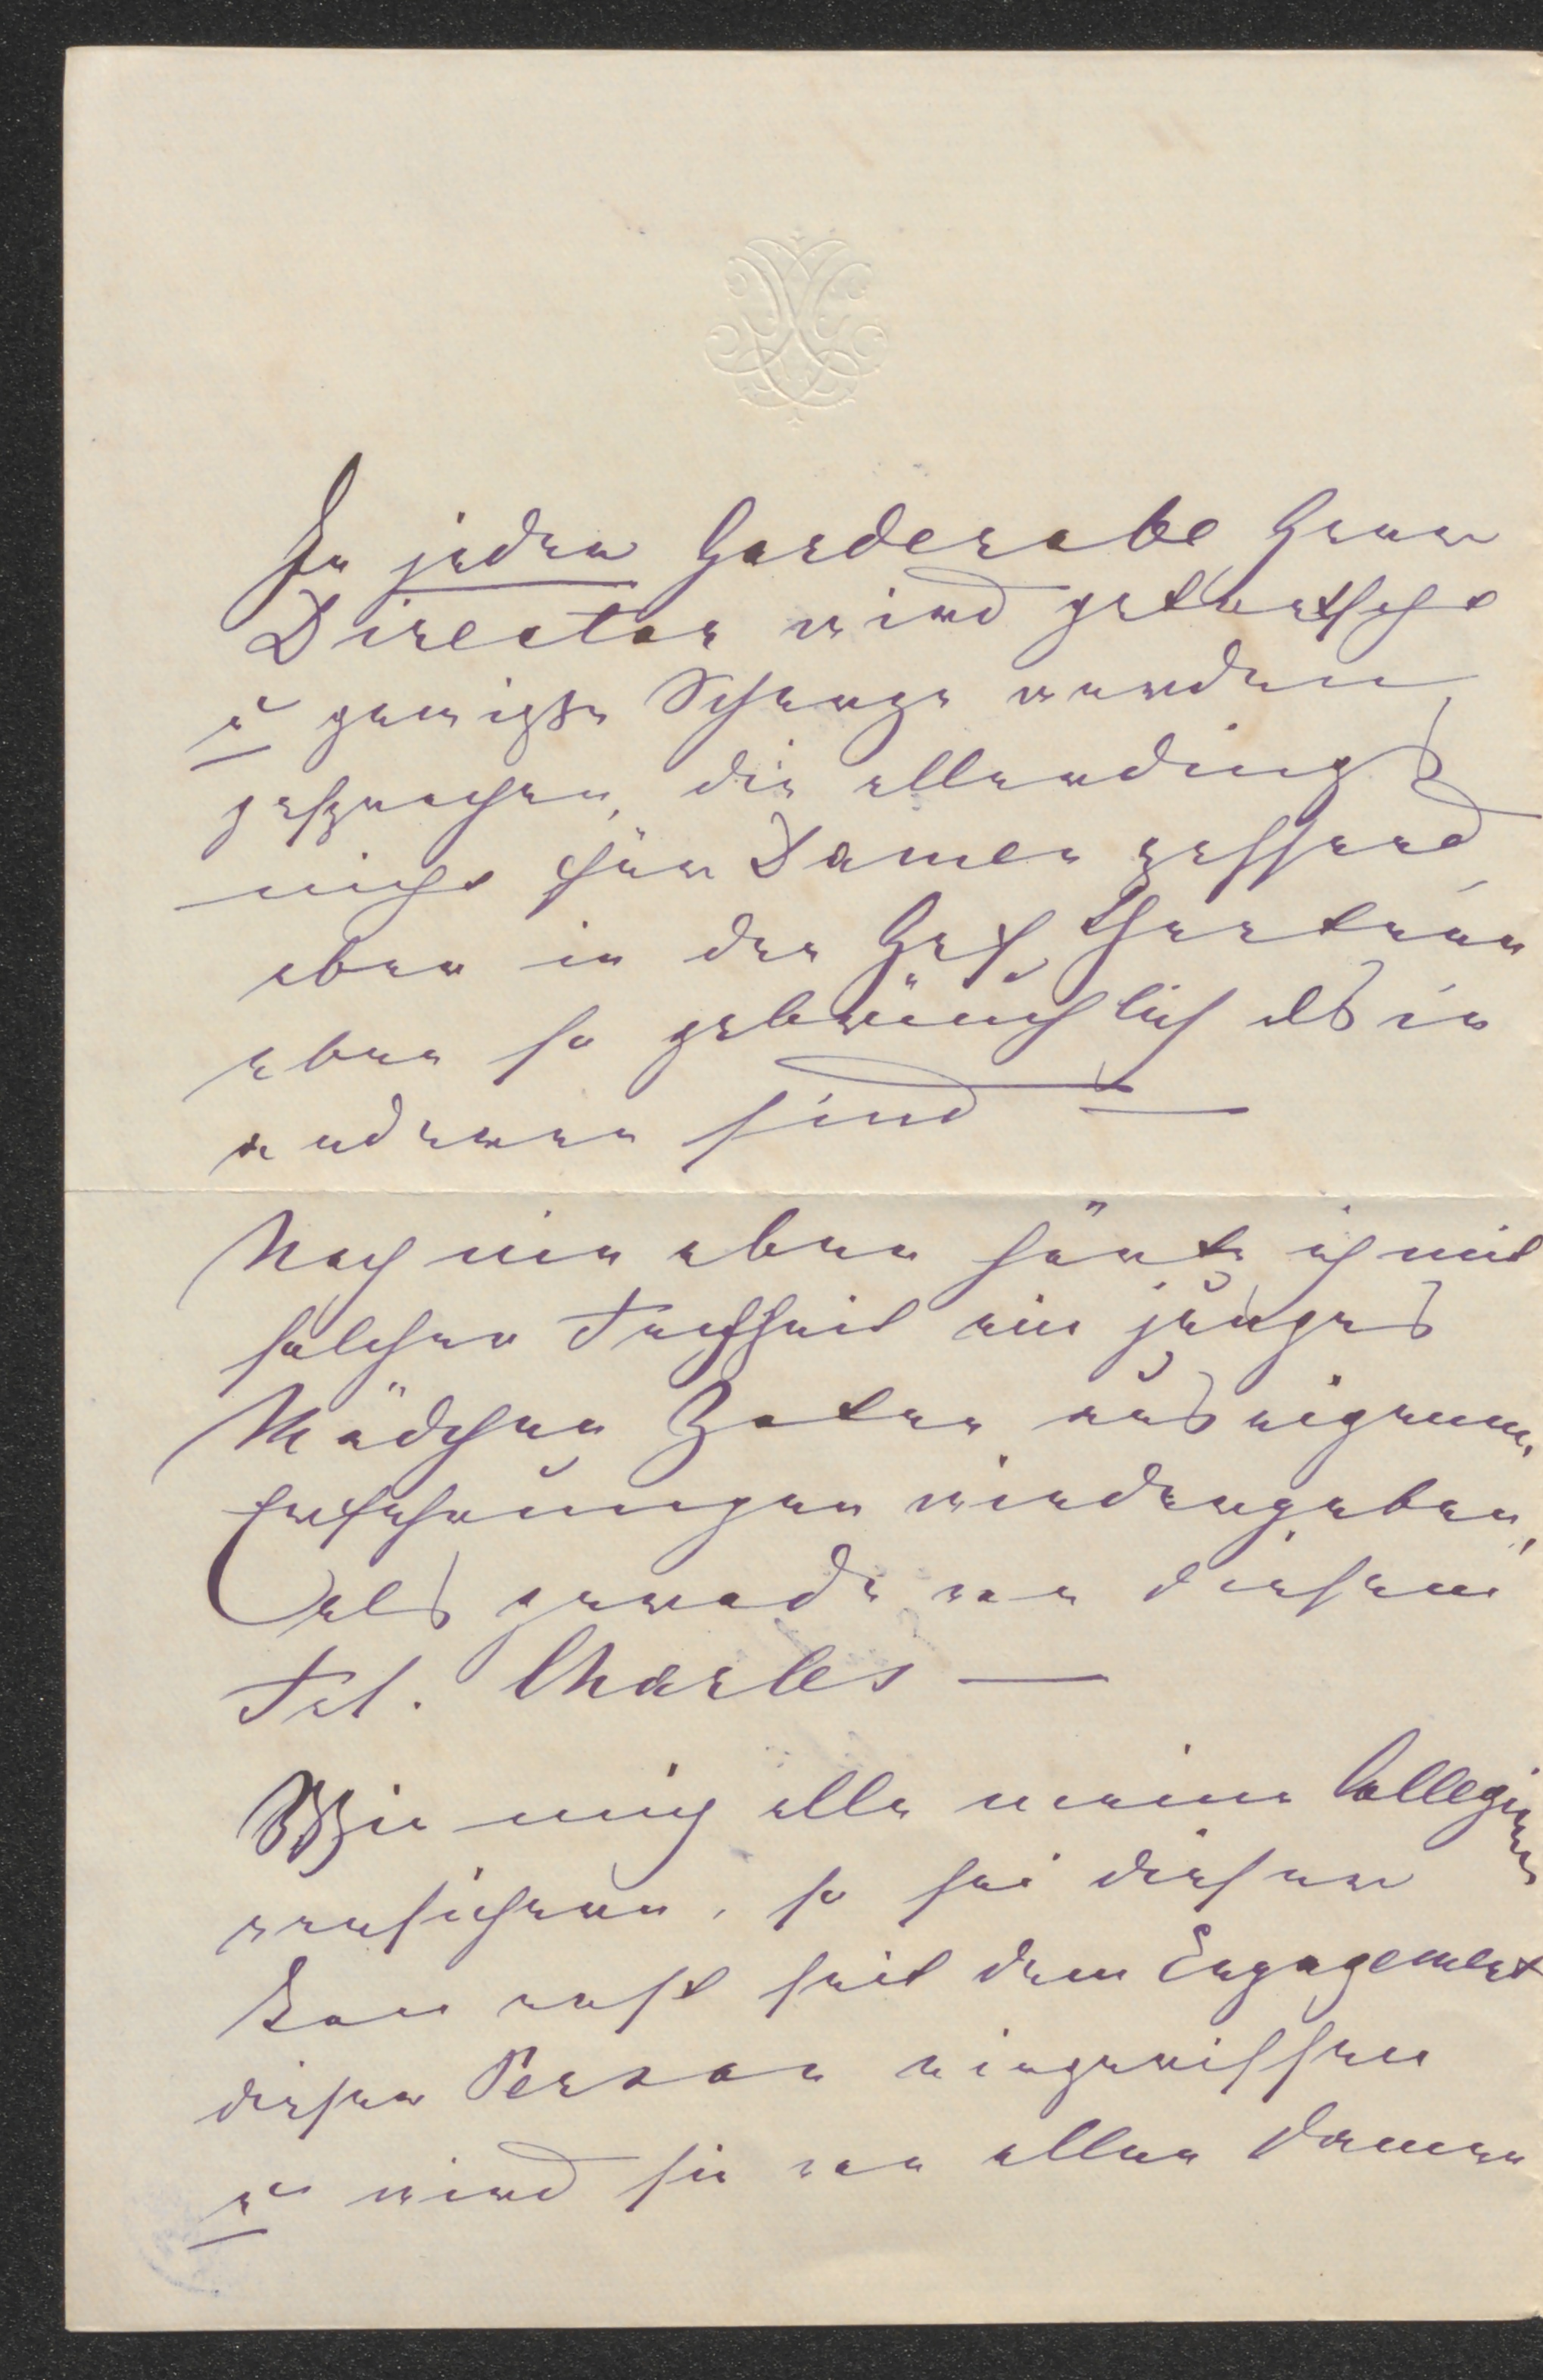 In jeder Garderobe Herr
Director wird getratscht
u gewiße Scherze werden
gesprochen, die allerdings
nicht für Damen passend
aber in der Hof Theatern
eben so gebräuchlich als in
anderen sind —
Noch nie aber hörte ich mit
solcher Frechheit ein junges
Mädchen Zoten aus eigenen
Erfahrungen wiedergeben,
als gerade von diesem
Frl. Charles —
Wie mich alle meine Colleginen
versichern, so sei dieser
Ton erst seit dem Engagement
dieser Person eingerissen
u wird sie von allen Damen